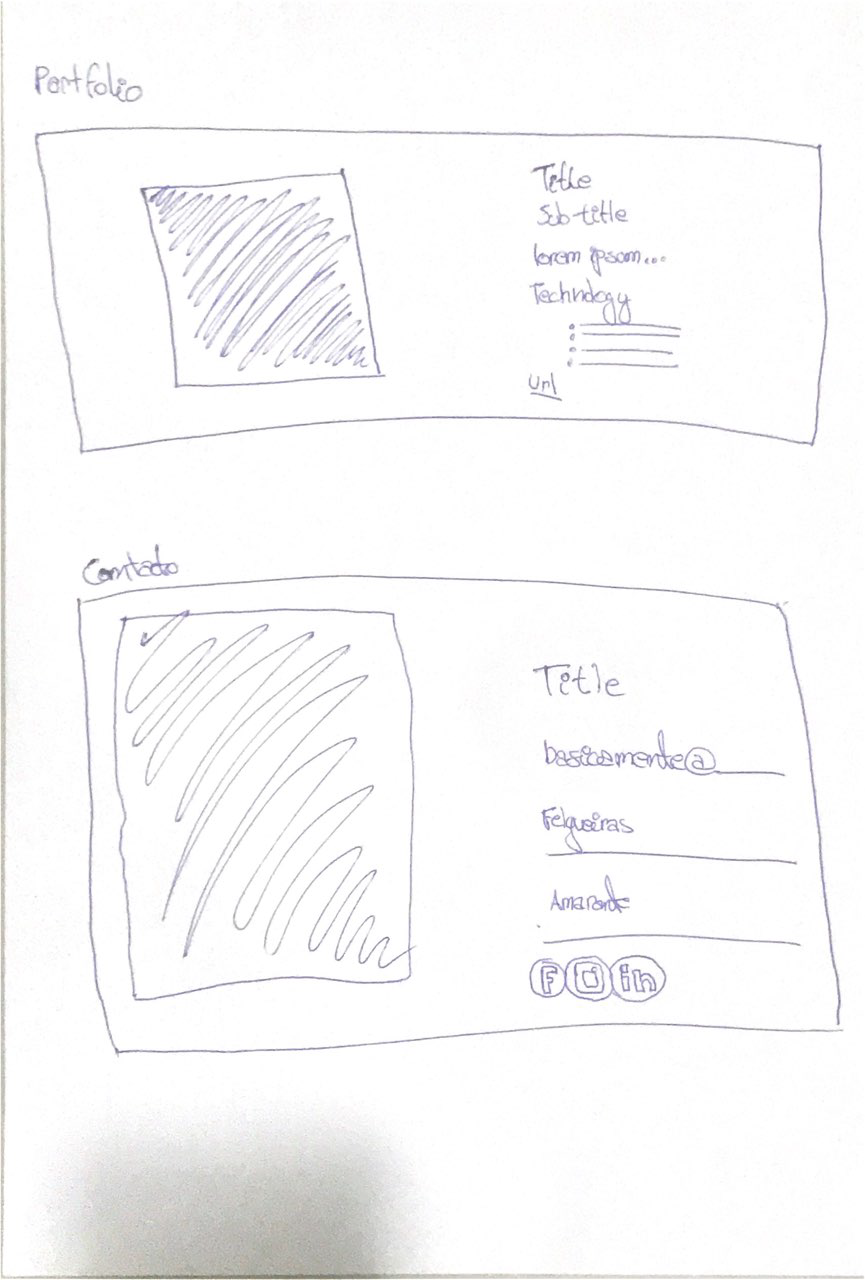 Portfolio
Title
Sub-title
lorem ipsom...
Technology
Url
Contacto
Title
basicamente@
Felgueiras
Amarante
F in